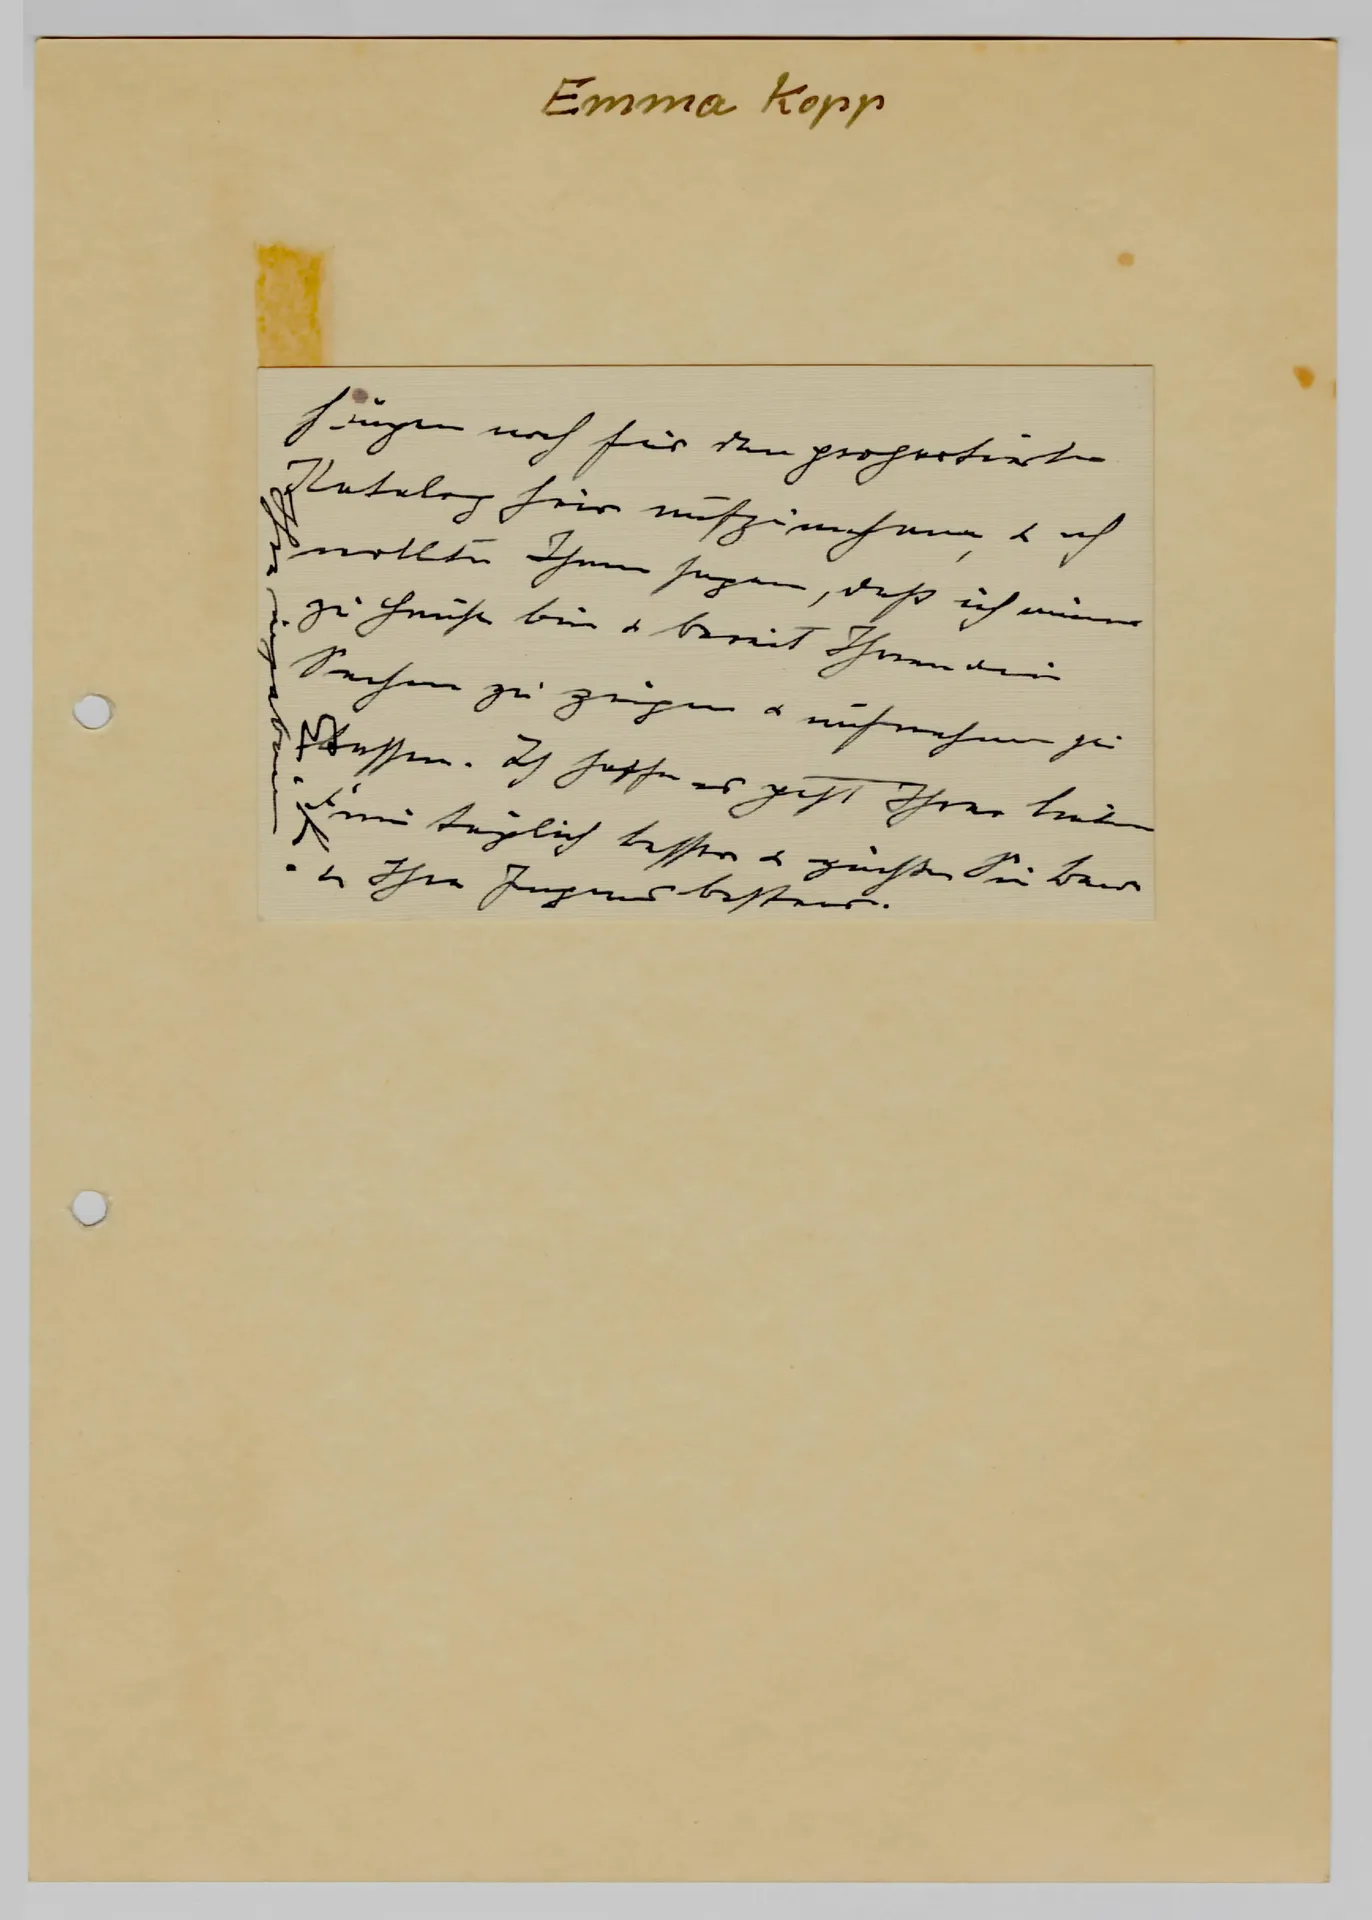 Emma Kopp
hängen noch für den projectierten
Katalog hier aufzunehmen, & ich
wollte Ihnen sagen, daß ich immer
zu Hause bin & bereit Ihnen die
Sachen zu zeigen & aufnehmen zu
lassen. Ich hoffe es geht Ihrer lieben
täglich besser & grüße Sie
& Ihre Jugend bestens.
Ihre ergebene
E. K.